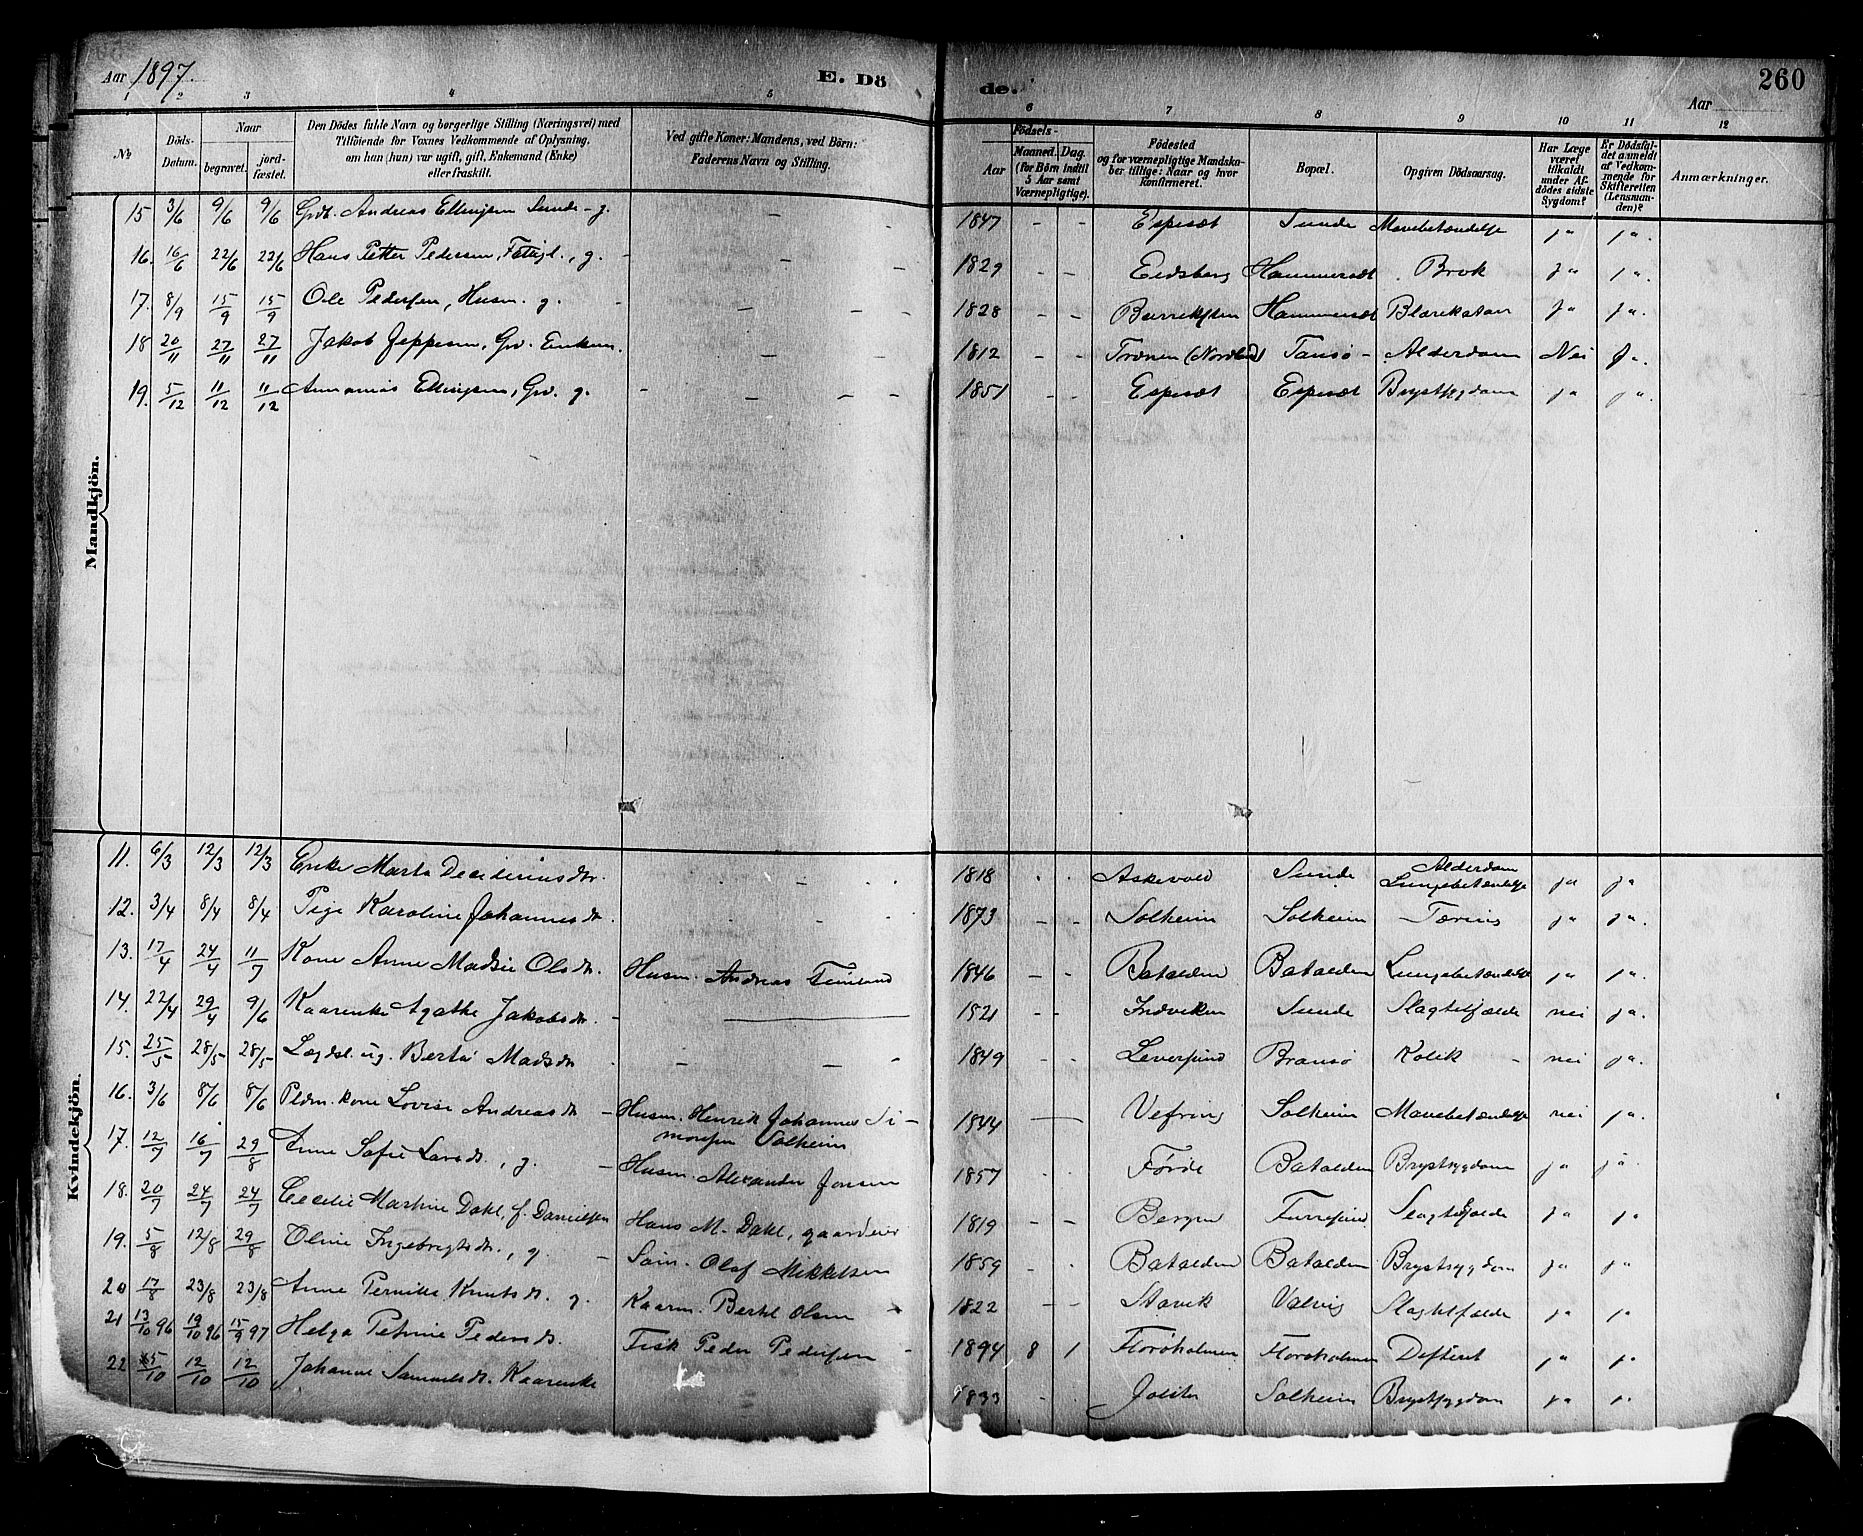 Aar 1897. E. Dö de. 260
Aar
1 2 3 4 5 6 7 8 9 10 11 12
No
Döds-Datum.
Naar
begravet. jord-fæstet.
Den Dödes fulde Navn og borgerlige Stilling (Næringsvei) med
Tilföiende for Voxnes Vedkommende af Oplysning,
om han (hun) var ugift, gift, Enkemand (Enke)
eller fraskilt.
Ved gifte Koner: Mandens, ved Börn:
Faderens Navn og Stilling.
Födsels-
Aar Maaned. Dag.
(for Börn indtil
5 Aar samt
Værnepligtige).
Födested
og for værnepligtige Mandska-
ber tillige: Naar og hvor
konfirmeret.
Bopæl.
Opgiven Dödsaarsag.
Har Læge
været
tilkaldt
under Af-
dödes sidste
Sygdom?
Er Dödsfal-
det anmeldt
af Vedkom-
mende for
Skifteretten
(Lensman-
den)?
Anmærkninger.
Mandkjön.
15 3/6 9/6 9/6 Grdr. Andreas Ellingsen Sunde - g. - - 1847 - - Espesæt Sunde Mavebetændelse ja ja.
16. 16/6 22/6 22/6 Hans Petter Pedersen, Fattigl., g. - - 1829 - - Eidsborg Hammersæt Brok ja ja.
17. 8/9 15/9 15/9 Ole Pedersen, Husm. g. - - - - 1828 - - Hammersæt Blærekatar ja ja.
18 20/11 27/11 27/11 Jakob Jeppesen, Gv. Enkem. - - 1812 - - Trænen (Nordland) Tansø - Alderdom Nei ja.
19. 5/12 11/12 11/12 Ananias Ellingsen, Gv. g. - - - - 1851 - - Espesæt Espesæt Brystsygdom ja ja.
Kvindekjön.
11. 6/3 12/3 12/3 Enke Marta Desideriusdr. - - - 1818 - - Askevold Sunde Alderdom
Lungebetændelse ja ja
12. 3/4 8/4 8/4 Pige Karoline Johannesdr. - - - 1873 - - Solheim Solheim Tæring ja ja.
13. 17/4 24/4 11/7 Kone Anne Madsie Olsdr. Husm. Andreas 1846 - - Batalden Batalden Lungebetændelse ja ja.
14. 22/4 29/4 9/6 Kaarenke Agathe Jakobsdr. - 1821 - - Indviken Sunde Slagtilfælde nei ja.
15. 25/5 28/5 28/5 Lægdsl. ug. Berte Madsdr. - - - 1849 - - Leversund Bransø Kolik - nei ja.
16. 3/6 8/6 8/6 Pldm. kone Lovise Andreasdr. - Husm. Henrik Johannes Si-
monsen Solheim 1844 - - Vefring Solheim Mavebetændelse nei ja.
17. 12/7 16/7 29/8 Anne Sofie Larsdr., g. - Husm. Alexander Jonsen 1857 - - Førde Batalden Brystsygdom ja ja
18. 20/7 24/7 24/7 Cecelie Martine Dahl, f. Danielsen Hans M. Dahl, gaardeier 1819 - - Bergen Furresund Slagtilfælde ja ja
19. 5/8 12/8 29/8 Oline Ingebrigtsdr., g. - Olaf Mikkelsen 1859 - - Batalden Batalden Brystsygdom ja ja.
20 17/8 23/8 23/8 Anne Pernille Knutsdr. g. Kaarm. Bertel Olsen - 1822 - - Stavik Valvig Slagtilfælde ja ja
21 13/10 96 19/10 96 15/9 97 Helga Petrine Pedersdr. Fisk Peder Pedersen - 1894 8 1 Florøholmen Florøholmen Difterit ja ja
22 5/10 12/10 12/10 Johanne Samuelsdr. Kaarenke 1833 - - Jølster Solheim Brystsygdom ja ja.